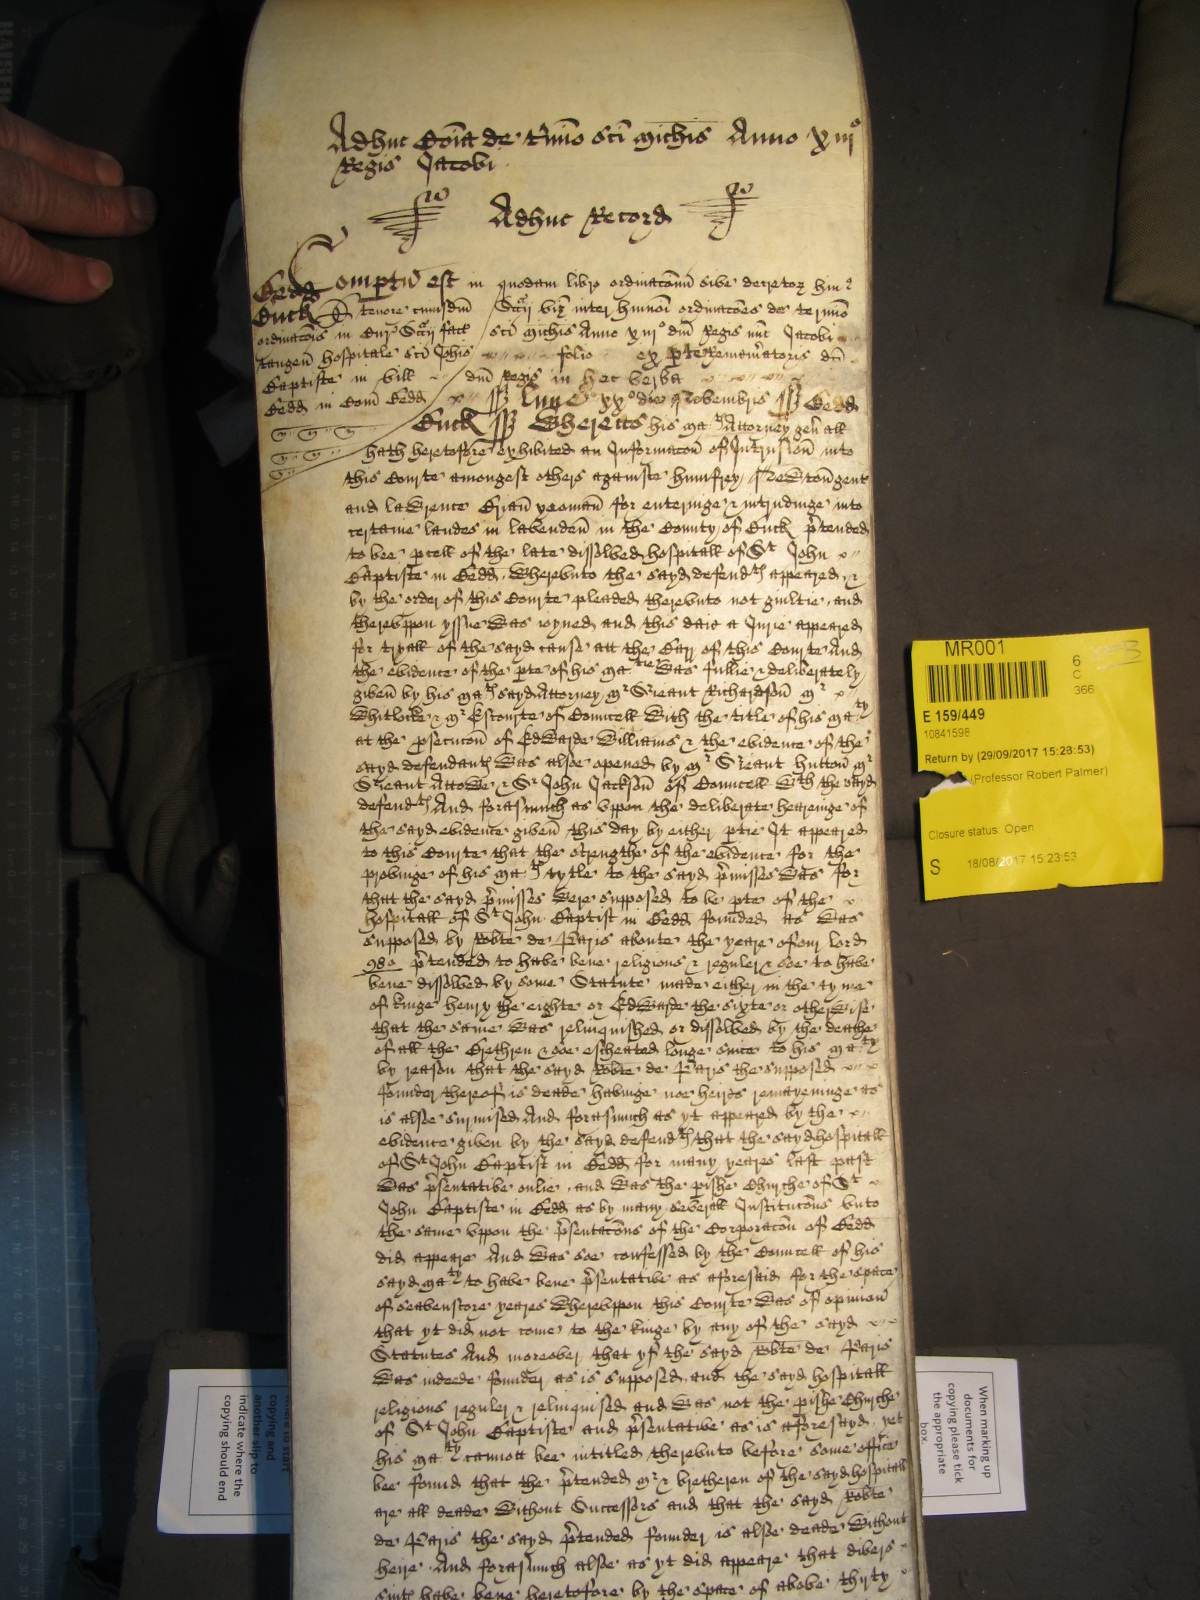 Adhuc Coia de Tmio sci Michis Anno xiii°
Regis Jacobi
Adhuc Record
Bedd
Buck
tenore cuiusdm
ordinacois in Cur Sccij fact
tangen hospitale sci Johis
Baptiste in vill
Bedd in Com Bedd
Comptu est in quodam libro ordinaconu sive decretoz hui9
Sccij viz inter hmnoi ordinacoes de termio
sci Michis Anno xiii° dni Regis nunc Jacobi
folio ex pte Rememoratoris dni
dni Regis in hec verba
Lune xx° die Novembris Bedd
Buck Whereas his Mats Attorney genall
hath heretofore exhibited an Informacon of Intrusion into
this Courte amongest others againste Humfrey gent
and Lawrence yeoman for enteringe & intrudinge into
certaine landes in Lavenden in the County of Buck p'tended
to bee pcell of the late dissolved hospitall of St John
Baptiste in Bedd. Wherevnto the sayd defendts appeared, &
by the order of this Courte pleaded therevnto not guiltie, and
therevppon yssue was ioyned and this daie a Jurie appeared
for tryall of the sayd cause att the Barr of this Courte And
the evidence of the pte of his Matie was fullie & deliberately
given by his Mats sayd Attorney, Mr Sreant Richardson Mr
Whitlocke & Mr Estcourte of Councell with the title of his Maty
at the psecucon of Edwarde Williams & the evidence of the
sayd defendants was alsoe opened by Mr Sreant Hutton Mr
Sreant Attowe & Sr John Jackson of Councell wth the sayd
defendts And forasmuch as vppon the deliberate hearinge of
the sayd evidence given this day by either ptie It appeared
to this Courte that the strengthe of the evidence for the
provinge of his Mats tytle to the sayd p'misses was for
that the sayd p'misses were supposed to be pte of the
hospitall of St John Baptist in Bedd founded as was
supposed by Robte de Paris aboute the yeare of our lord
980 p'tended to have bene religious & reguler & soe to have
bene dissolved by some Statute made either in the tyme
of kinge Henry the eighte or Edwarde the sixte or otherwise
that the same was relinquished or dissolved by the deathe
of all the Brethren & soe escheated longe since to his Maty
by reason that the sayd Robte de Paris the supposed
founder thereof is deade havinge noe heires remayneinge as
is alsoe surmised And forasmuch as yt appeared by the
evidence given by the sayd defendts that the sayd hospitall
of St John Baptist in Bedd for many yeares last past
was p'sentative onlie, and was the pishe Churche of St
John Baptiste in Bedd as by many severall Institucons vnto
the same vppon the p'sentacons of the Corporacon of Bedd
did appeare And was soe confessed by the Councell of his
sayd Maty to have bene p'sentative as aforesaid for the space
of seavenscore yeares Wherevppon this Courte was of opinion
that yt did not come to the kinge by any of the sayd
Statutes And moreover that yf the sayd Robte de Paris
was indeede founder as is supposed, and the sayd hospitall
religious reguler & relinquised and was not the pishe Churche
of St John Baptiste and p'sentative as is aforesayd, yet
his Maty cannott bee intitled therevnto before some office
bee found that the p'tended Mr & bretheren of the sayd hospitall
are all deade without Successors and that the sayd Robte
de Paris the sayd p'tended founder is alsoe deade without
heire And forasmuch alsoe as yt did appeare that divers
suits have bene heretofore by the space of above thirty
MR001
6
C
366
E 159/449
10841598
Return by (29/09/2017 15:28:53)
(Professor Robert Palmer)
Closure status: Open
S 18/08/2017 15:23:53
When marking up
documents for
copying please tick
the appropriate
box.
copying and
another slip to
indicate where the
copying should end